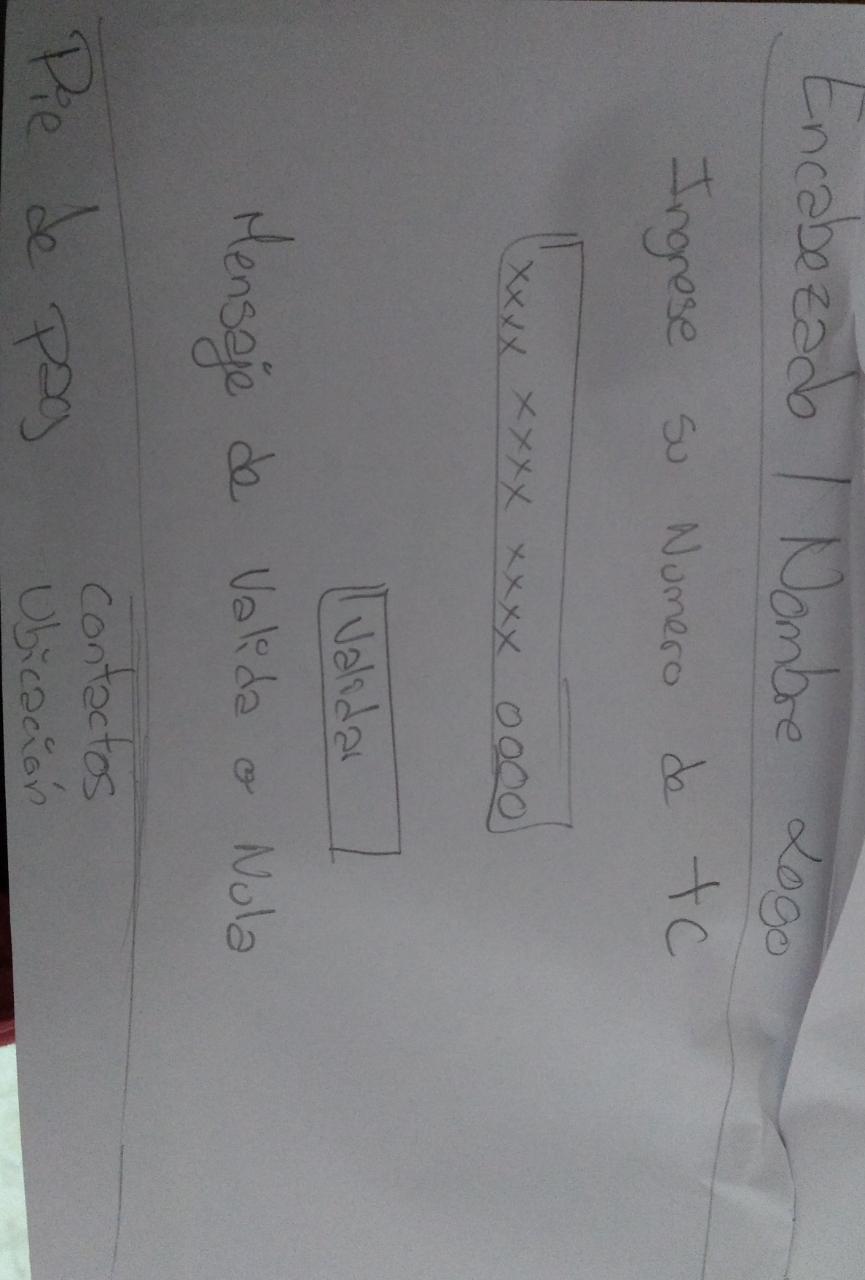 Encabezado / Nombre Logo
Ingrese su Numero de tc
xxxx xxxx xxxx 0000
Validar
Mensaje de Valida o Nula
Pie de pag
contactos
Ubicación